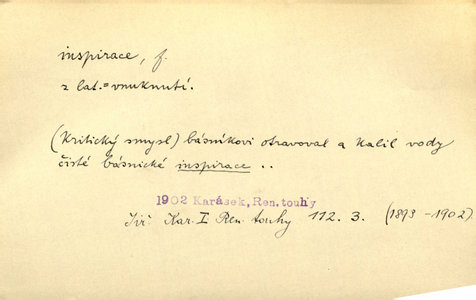 inspirace, f.
z lat. = vnuknutí.
(Kritický smysl) básníkovi otravoval a kalil vody
čisté básnické inspirace ..
1902 Karásek, Ren. touhy
Jiř. Kar. I Ren. touhy 112. 3. (1893 - 1902)